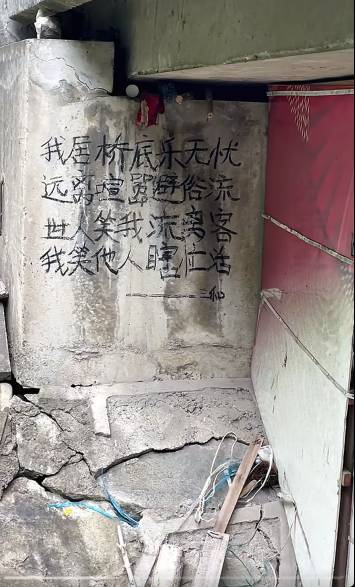 我居桥底乐无忧
远离喧嚣避俗流
世人笑我流离客
我笑他人瞎忙活
——三仙